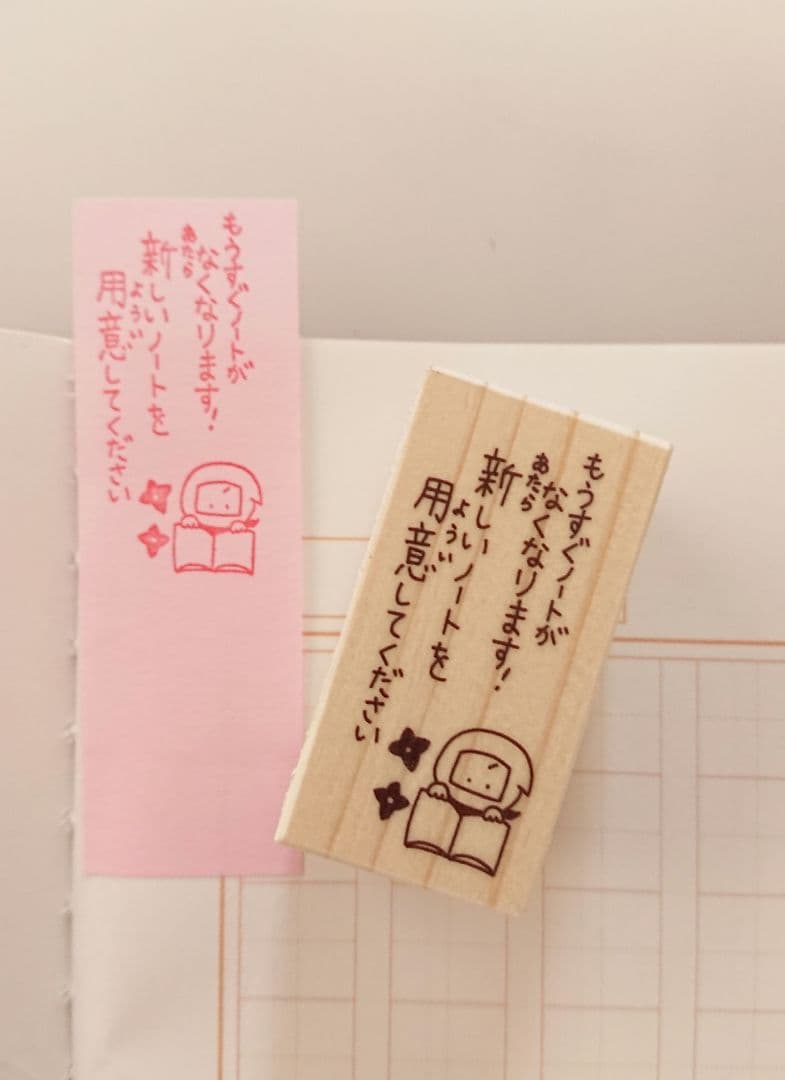 もうすぐノートが
なくなります!
あたら
新しいノートを
ようい
用意してください
もうすぐノートが
なくなります!
あたら
新しいノートを
ようい
用意してください